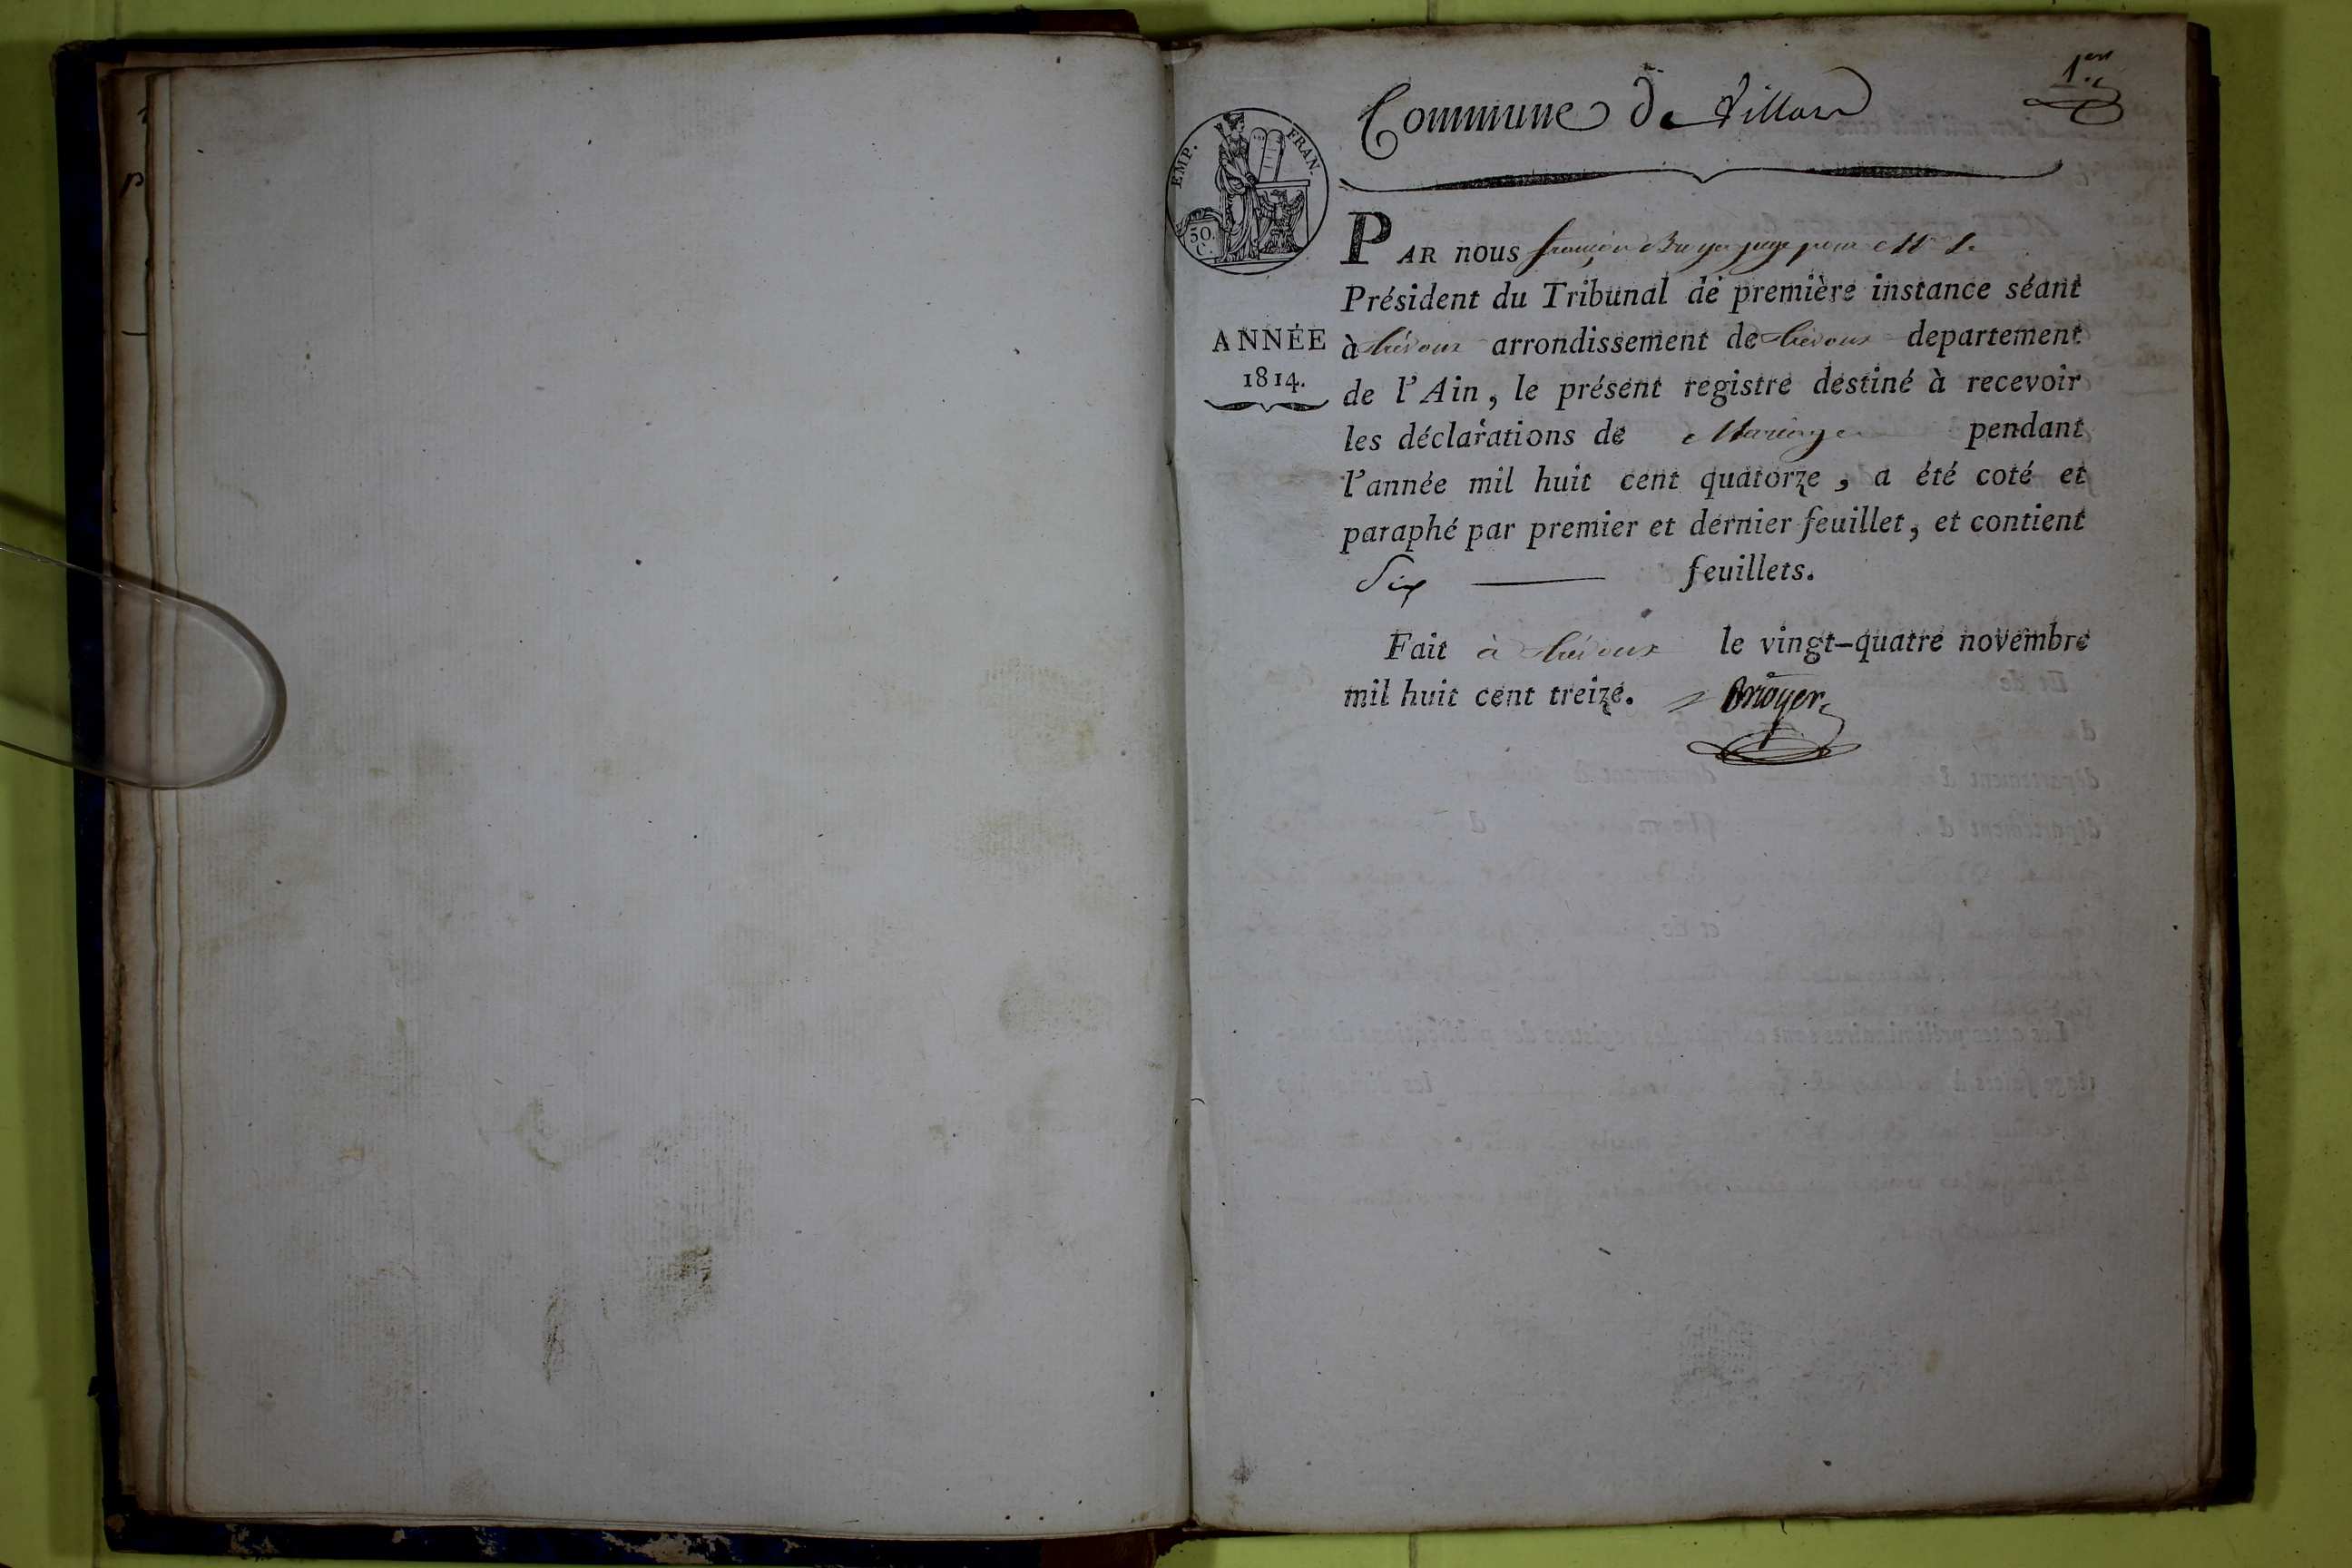 1er
Commune de Villars
EMP. FRAN.
50.
C.
PAR nous françois Bruyer juge pour Mr. le
Président du Tribunal de première instance séant
ANNÉE
1814.
à trévoux arrondissement de trévoux departement
de l'Ain, le présent registre destiné à recevoir
les déclarations de Mariage pendant
l'année mil huit cent quatorze, a été coté et
paraphé par premier et dernier feuillet, et contient
Six feuillets.
Fait à trévoux le vingt-quatre novembre
mil huit cent treize.